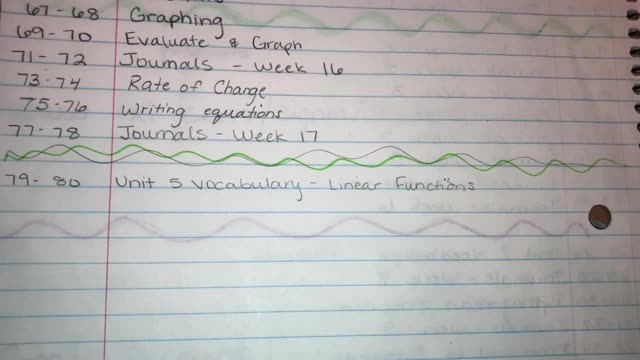 67 - 68 Graphing
69 - 70 Evaluate & Graph
71 - 72 Journals - Week 16
73 - 74 Rate of Change
75 - 76 Writing equations
77 - 78 Journals - Week 17
79 - 80 Unit 5 Vocabulary - Linear Functions